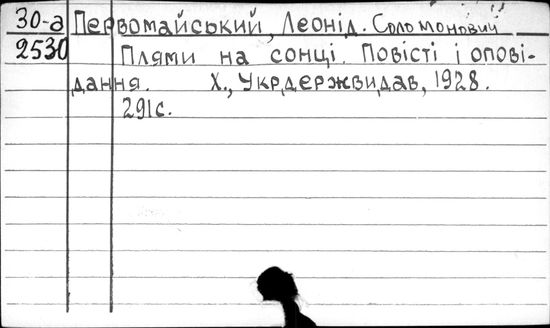 30-а Первомайський, Леонід. Соломонович
2530 Плями на сонці. Повісті і опові-
дання. Х., Укрдержвидав, 1928.
291с.